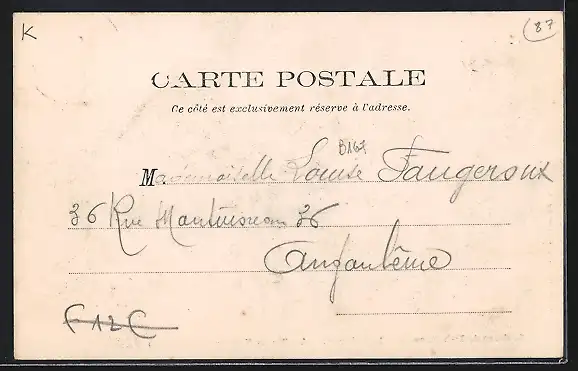 K
(87
CARTE POSTALE
Ce côté est exclusivement réserve à l'adresse.
B167
Mademoiselle Louise Faugeroux
36 Rue 36
Angoulême